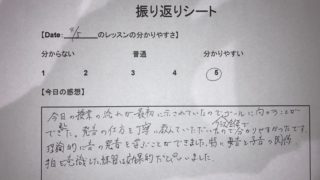 振り返りシート
【Date: 4/5 のレッスンの分かりやすさ】
分からない 普通 分かりやすい
1 2 3 4 5
【今日の感想】
今日の授業の流れが最初に示されていたのでゴールに向かうことが
できた。発音の仕方を丁寧に教えていただいたので分かりやすかったです。
理論的に音の発音を学ぶことができました。特に母音と子音の関係
拍を意識した練習は効果的だと思いました。